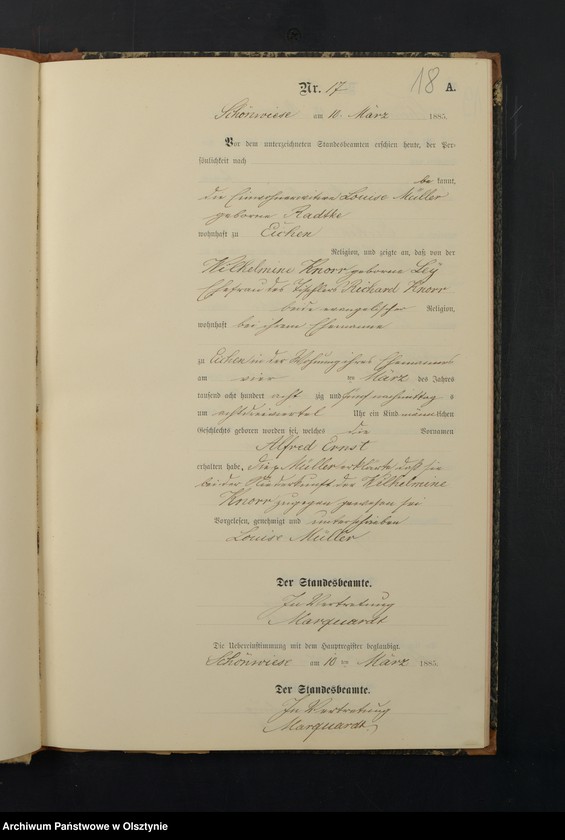 18
Nr. 17 A.
Schönwiese am 10. März 1885.
Vor dem unterzeichneten Standesbeamten erschien heute, der Per-
sönlichkeit nach
be kannt,
die Einwohnerwitwe Louise Müller
geborene Radtke
wohnhaft zu Eichen
Religion, und zeigte an, daß von der
Wilhelmine Knorr, geborene Ley
Ehefrau des Tischlers Richard Knorr
beide evangelischer Religion,
wohnhaft bei ihrem Ehemanne
zu Eichen in der Wohnung ihres Ehemannes
am vier ten März des Jahres
tausend acht hundert acht zig und fünf nachmittag s
um acht dreiviertel Uhr ein Kind männlichen
Geschlechts geboren worden sei, welches die Vornamen
Alfred Ernst
erhalten habe. Die p. Müller erklärte daß sie
bei der Niederkunft der Wilhelmine
Knorr zugegen gewesen sei
Vorgelesen, genehmigt und unterschrieben
Louise Müller
Der Standesbeamte.
In Vertretung
Marquardt
Die Uebereinstimmung mit dem Hauptregister beglaubigt.
Schönwiese am 10 ten März 1885.
Der Standesbeamte.
In Vertretung
Marquardt
Archiwum Państwowe w Olsztynie